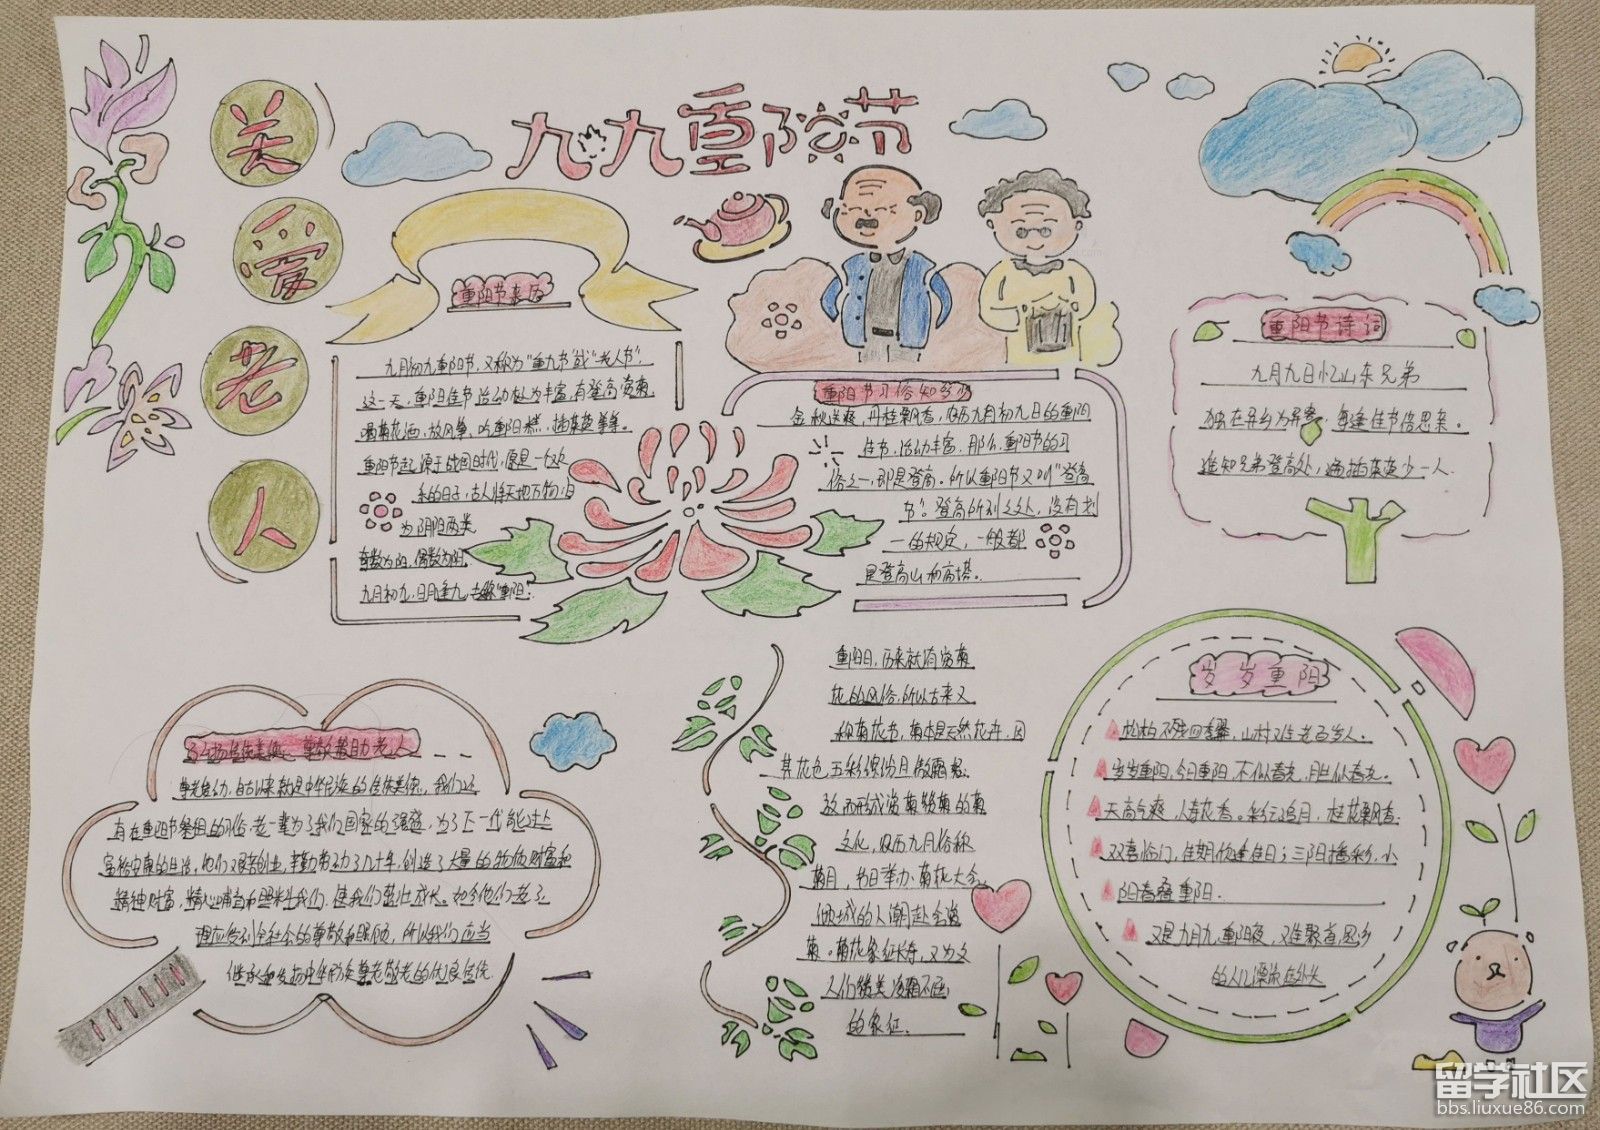 九九重阳节
关
爱
老
人
重阳节来历
九月初九重阳节，又称为“重九节”或“老人节”，
这一天，重阳佳节活动极为丰富，有登高赏菊，
喝菊花酒，放风筝，吃重阳糕，插茱萸等等。
重阳节起源于战国时代，原是一个欢
乐的日子，古人将天地万物归
为阴阳两类
奇数为阳，偶数为阴，
九月初九，日月逢九，“重阳”
重阳节习俗知多少
金秋送爽，丹桂飘香，农历九月初九日的重阳
佳节，活动丰富，那么，重阳节的习
俗之一，即是登高。所以重阳节又叫“登高
节”。登高所到之处，没有划
一的规定，一般都
是登高山和高塔。
重阳节诗词
九月九日忆山东兄弟
独在异乡为异客，每逢佳节倍思亲。
遥知兄弟登高处，遍插茱萸少一人。
弘扬传统美德，尊敬帮助老人
尊老爱幼，自古以来就是中华民族的传统美德，我们还
有在重阳节祭祖的习俗，老一辈为了我们国家的强盛，为了下一代能过上
富裕安康的生活，他们艰苦创业，辛勤劳动了几十年，创造了大量的物质财富和
精神财富，精心哺育和照料我们，使我们茁壮成长。如今他们老了
理应受到全社会的尊敬和照顾，所以我们应当
继承和发扬中华民族尊老敬老的优良传统
重阳日，历来就有赏菊
花的风俗，所以古来又
称菊花节，菊本是天然花卉，因
其花色五彩缤纷且傲霜怒
放而形成赏菊颂菊的菊
文化，农历九月俗称
菊月，节日举办菊花大会
倾城的人潮赴会赏
菊。菊花象征长寿，又为文
人们赞美凌霜不屈
的象征。
岁岁重阳
松柏不残四季翠，山村难老百岁人。
岁岁重阳，今日重阳，不似春光，胜似春光。
天高气爽，人寿花香。彩云追月，桂花飘香
双喜临门，佳期佳日；三阳播彩，小
阳春叠重阳。
又是九月九，重阳夜，难聚首，思乡
的人儿漂流在外头
留学社区
bbs.liuxue86.com